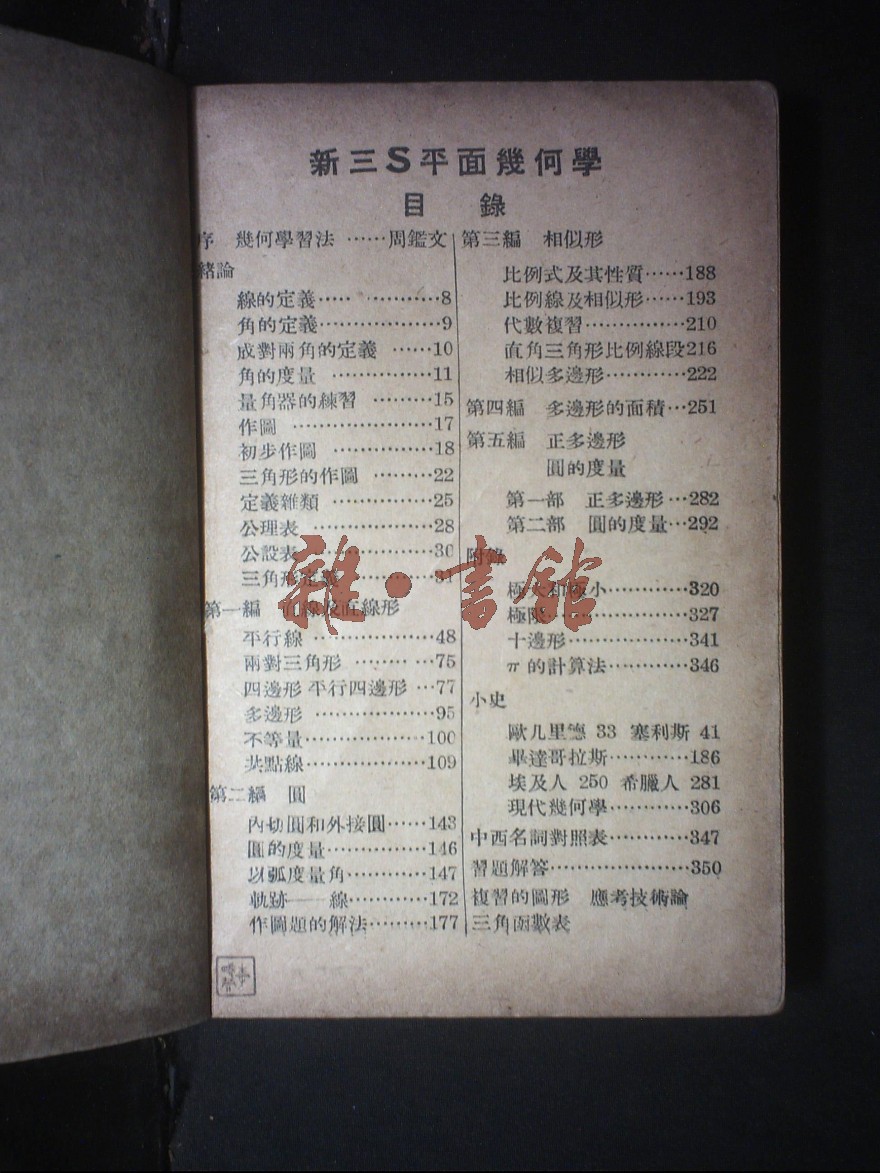 新三S平面幾何學
目 錄
序 幾何學習法 ……周鑑文
緒論
線的定義…… …………8
角的定義………………9
成對兩角的定義 ……10
角的度量 ……………11
量角器的練習 ………15
作圖 …………………17
初步作圖 ……………18
三角形的作圖 ………22
定義雜類 ……………25
公理表 ………………28
公設表 ………………30
三角形定義 …………31
第一編 直線及直線形
平行線 ………………48
兩對三角形 …… …75
四邊形 平行四邊形 …77
多邊形 ………………95
不等量………………100
共點線………………109
第二編 圓
內切圓和外接圓……143
圓的度量……………146
以弧度量角…………147
軌跡——線…………172
作圖題的解法………177
第三編 相似形
比例式及其性質……188
比例線及相似形……193
代數複習……………210
直角三角形比例線段216
相似多邊形…………222
第四編 多邊形的面積…251
第五編 正多邊形
圓的度量
第一部 正多邊形…282
第二部 圓的度量…292
附錄
極大和極小…………320
極限…………………327
十邊形………………341
π的計算法…………346
小史
歐几里德 33 塞利斯 41
畢達哥拉斯…………186
埃及人 250 希臘人 281
現代幾何學…………306
中西名詞對照表…………347
習題解答…………………350
複習的圖形 應考技術論
三角函數表
雜·書館